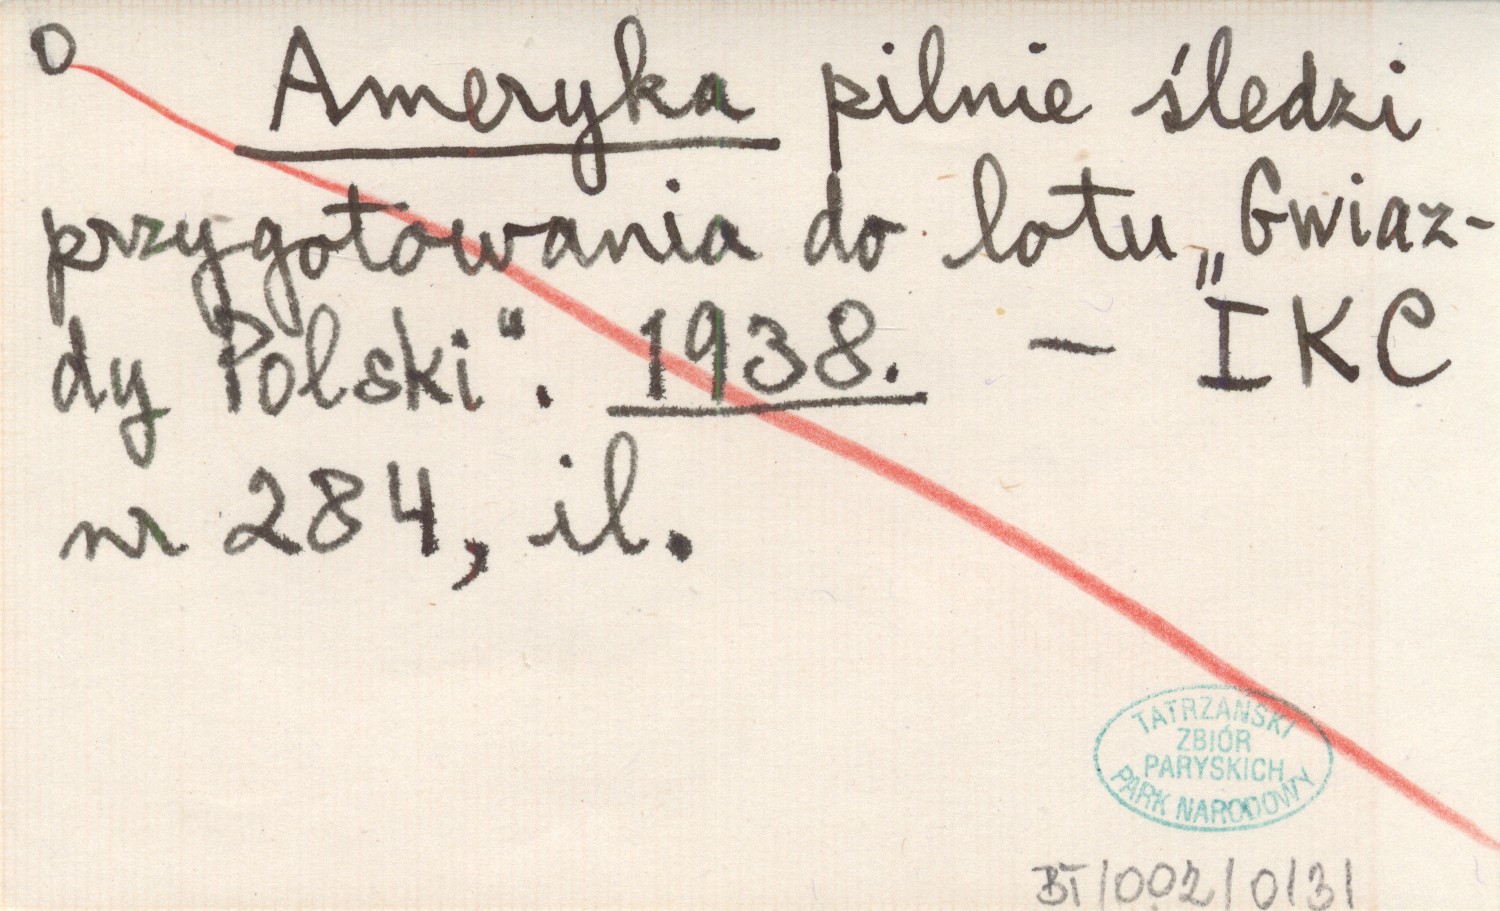 O Ameryka pilnie śledzi
przygotowania do lotu „Gwiaz-
dy Polski“. 1938. — IKC
nr 284, il.
TATRZAŃSKI
ZBIÓR
PARYSKICH
PARK NARODOWY
BT/002/0131